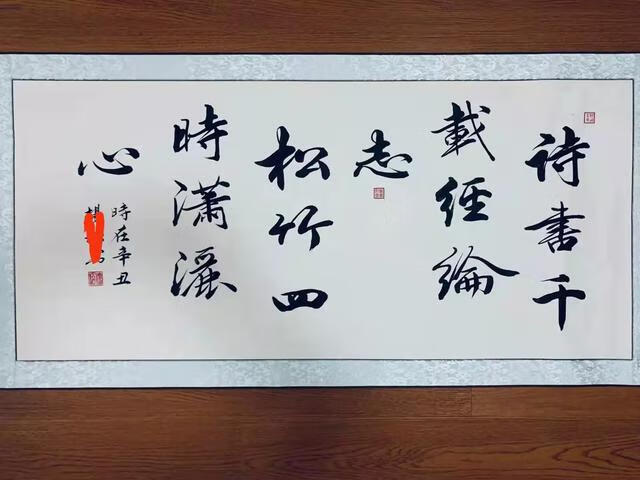 诗書千
載經綸
志
松竹四
時瀟灑
心
時在辛丑